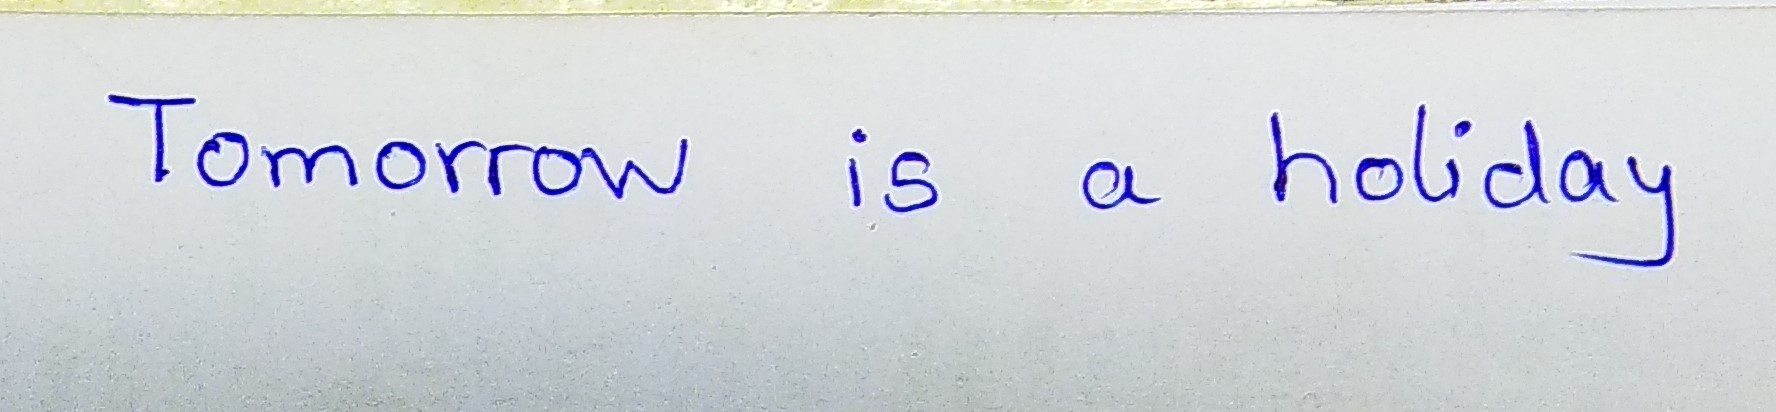 Tomorrow is a holiday